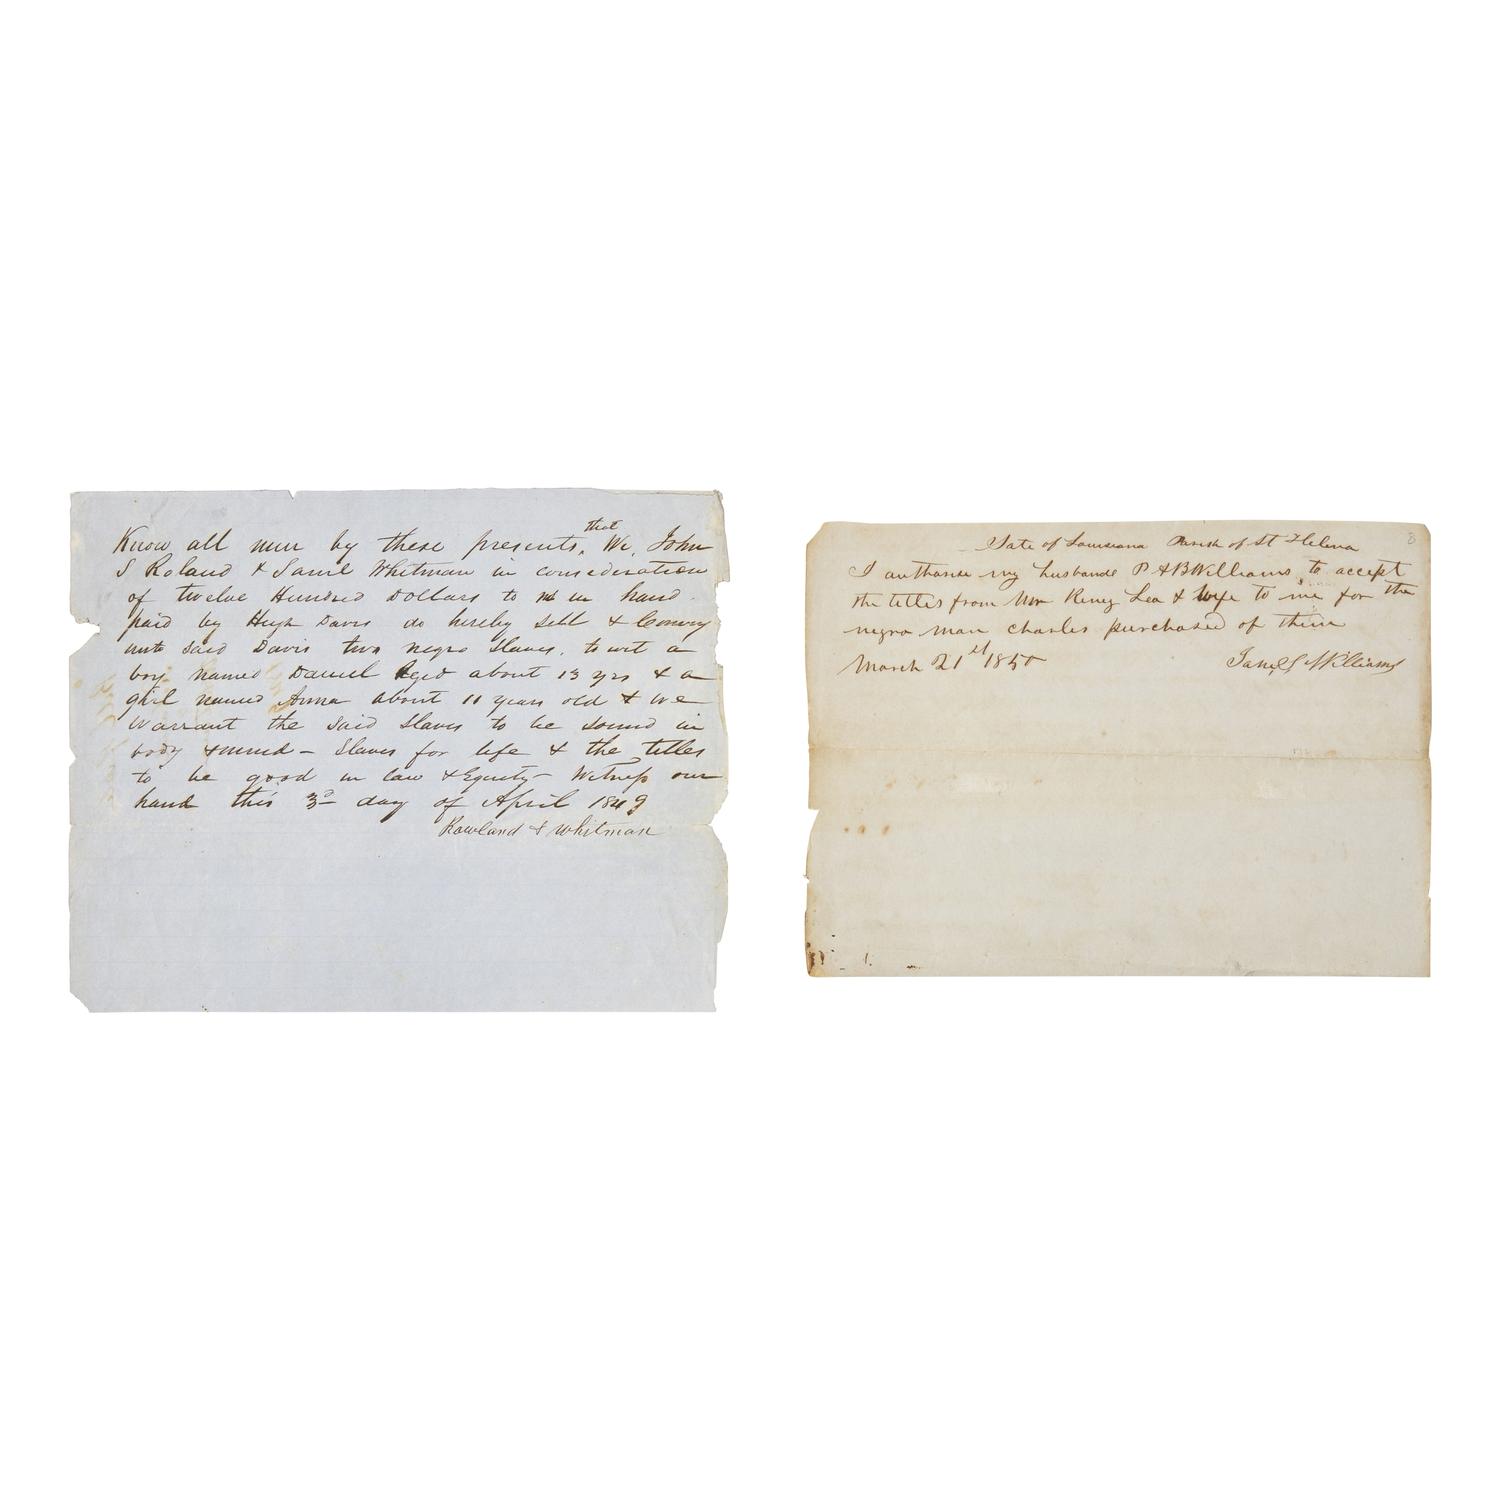 Know all men by these presents, that We, John
S Roland & Saml Whitman in consideration
of twelve Hundred Dollars to us in hand
paid by Hugh Davis do hereby sell & Convey
unto said Davis two negro Slaves, to wit a
boy named Daniel Aged about 13 yrs & a
girl named Anna about 11 years old & we
warrant the said Slaves to be sound in
body & mind – Slaves for life & the titles
to be good in law & Equity – Witness our
hand this 3d day of April 1849
Rowland & Whitman
State of Louisiana Parish of St Helena
8
I authorise my husbande P A B Williams, to accept
the titles from Mr Lea & wife to me for the
negro man charles purchased of them
March 21st 1850
Williams